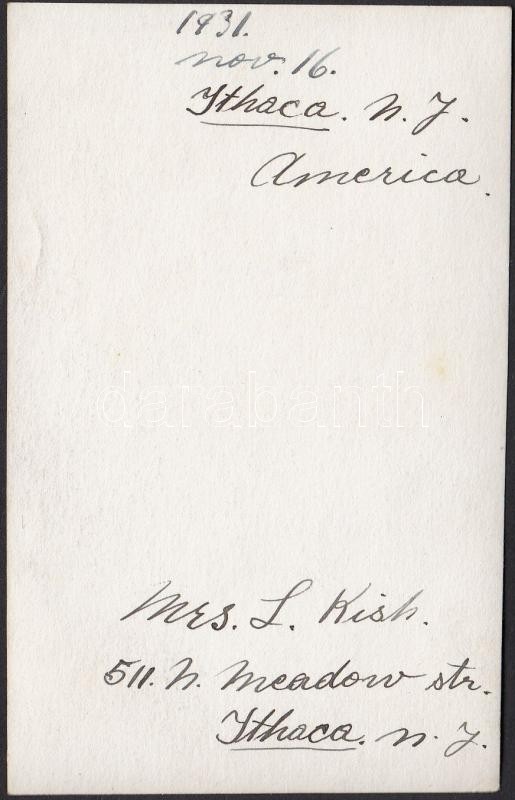 1931.
nov. 16.
Ithaca. N. Y.
America.
darabanth
Mrs. L. Kish.
511. N. Meadow str.
Ithaca. n. y.